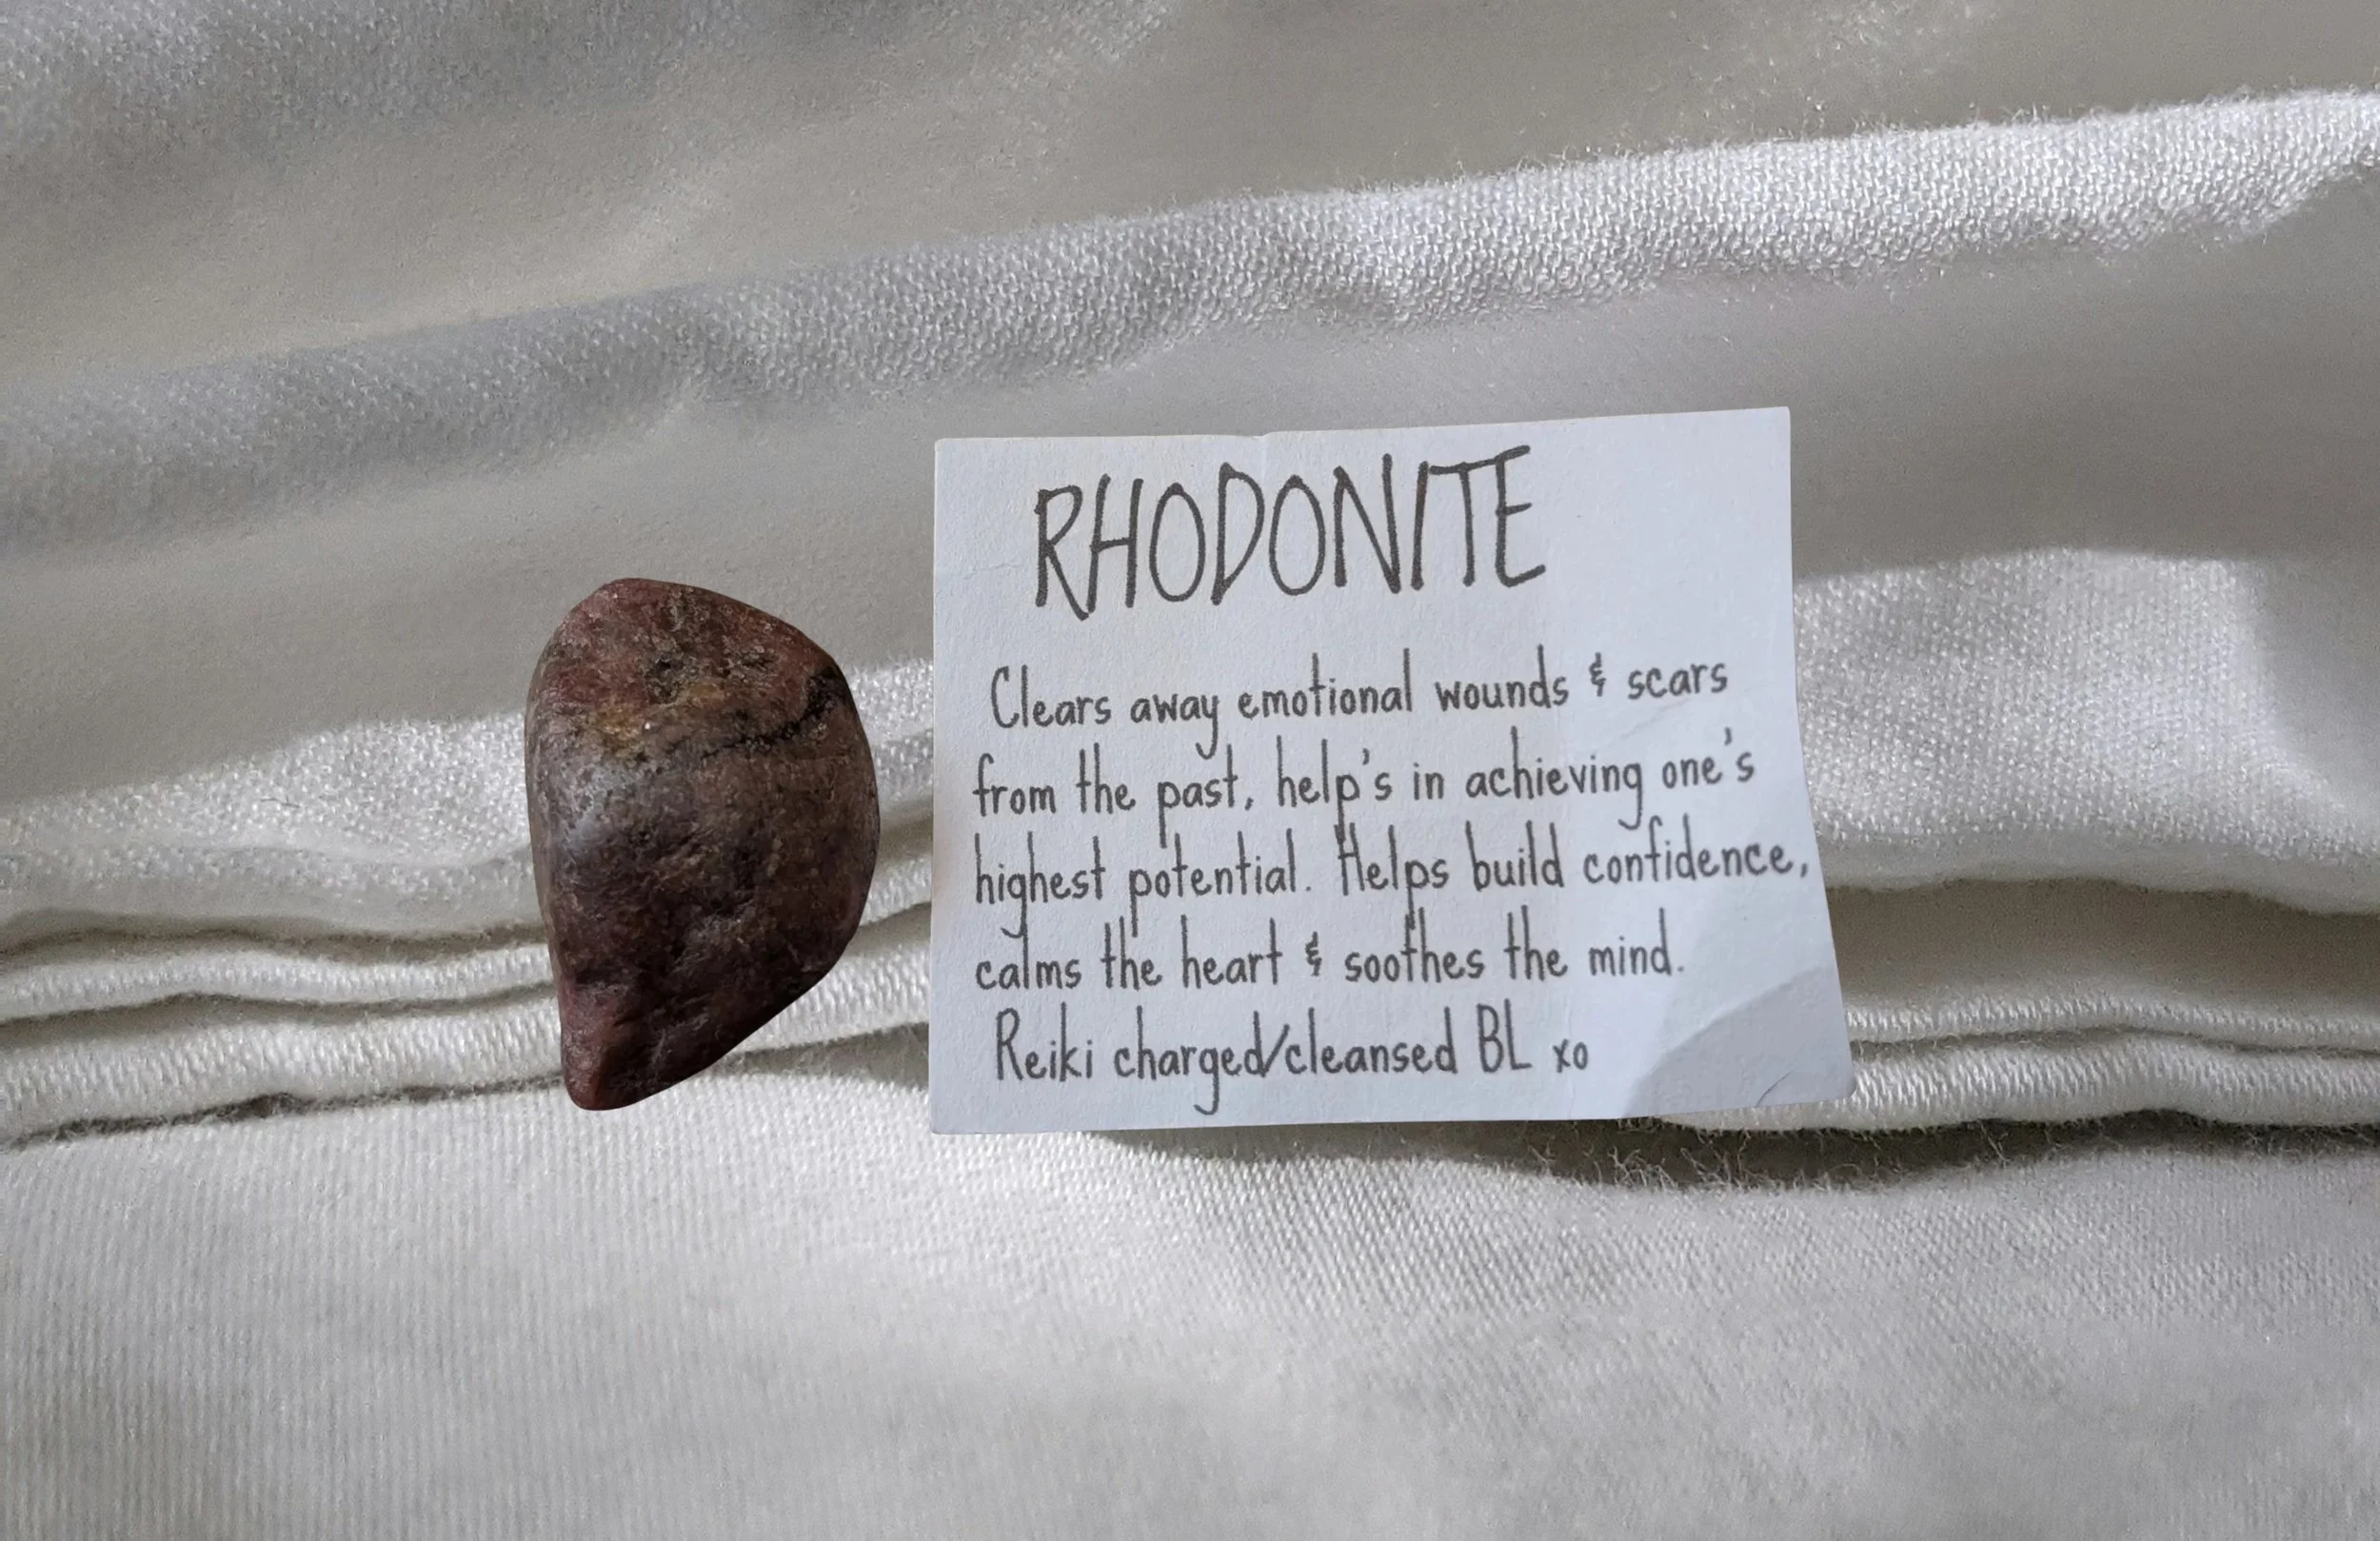 RHODONITE
Clears away emotional wounds & scars
from the past, help's in achieving one's
highest potential. Helps build confidence,
calms the heart & soothes the mind.
Reiki charged/cleansed BL xo